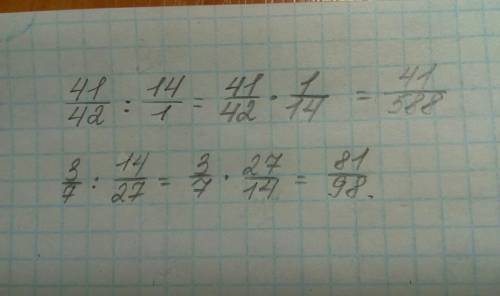 41/42 : 14/1 = 41/42 · 1/14 = 41/588
3/7 : 14/27 = 3/7 · 27/14 = 81/98.